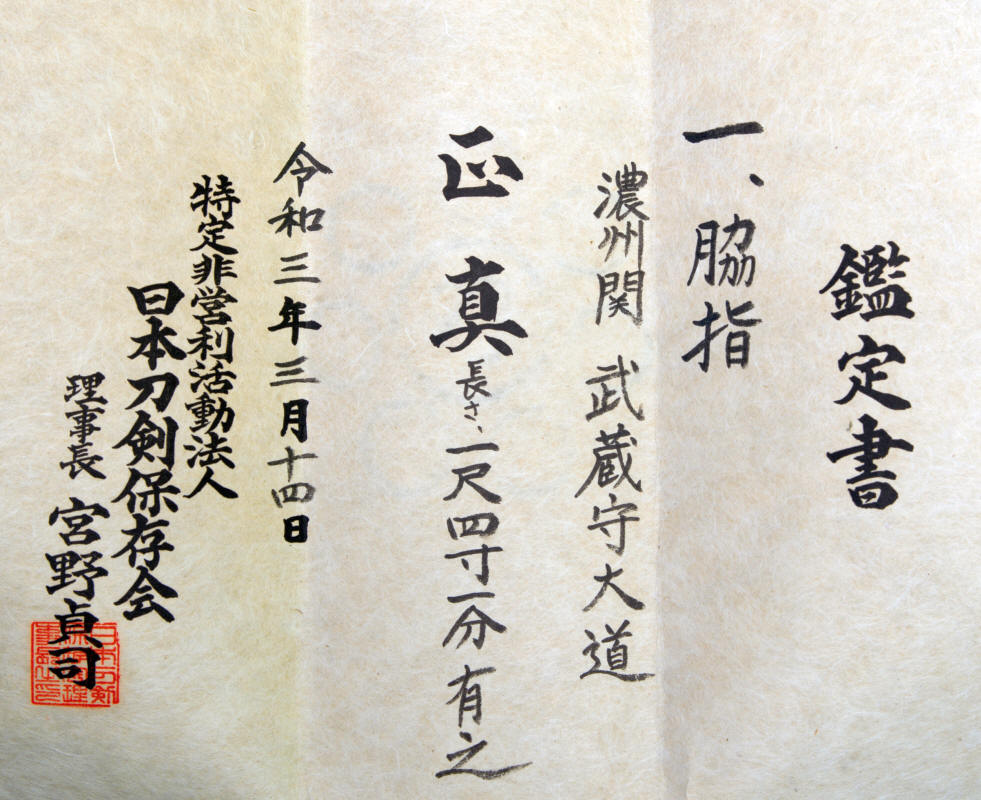 鑑定書
一、脇指
濃州関 武蔵守大道
正真 長さ、一尺四寸一分有之
令和三年三月十四日
特定非営利活動法人
日本刀剣保存会
理事長 宮野貞司